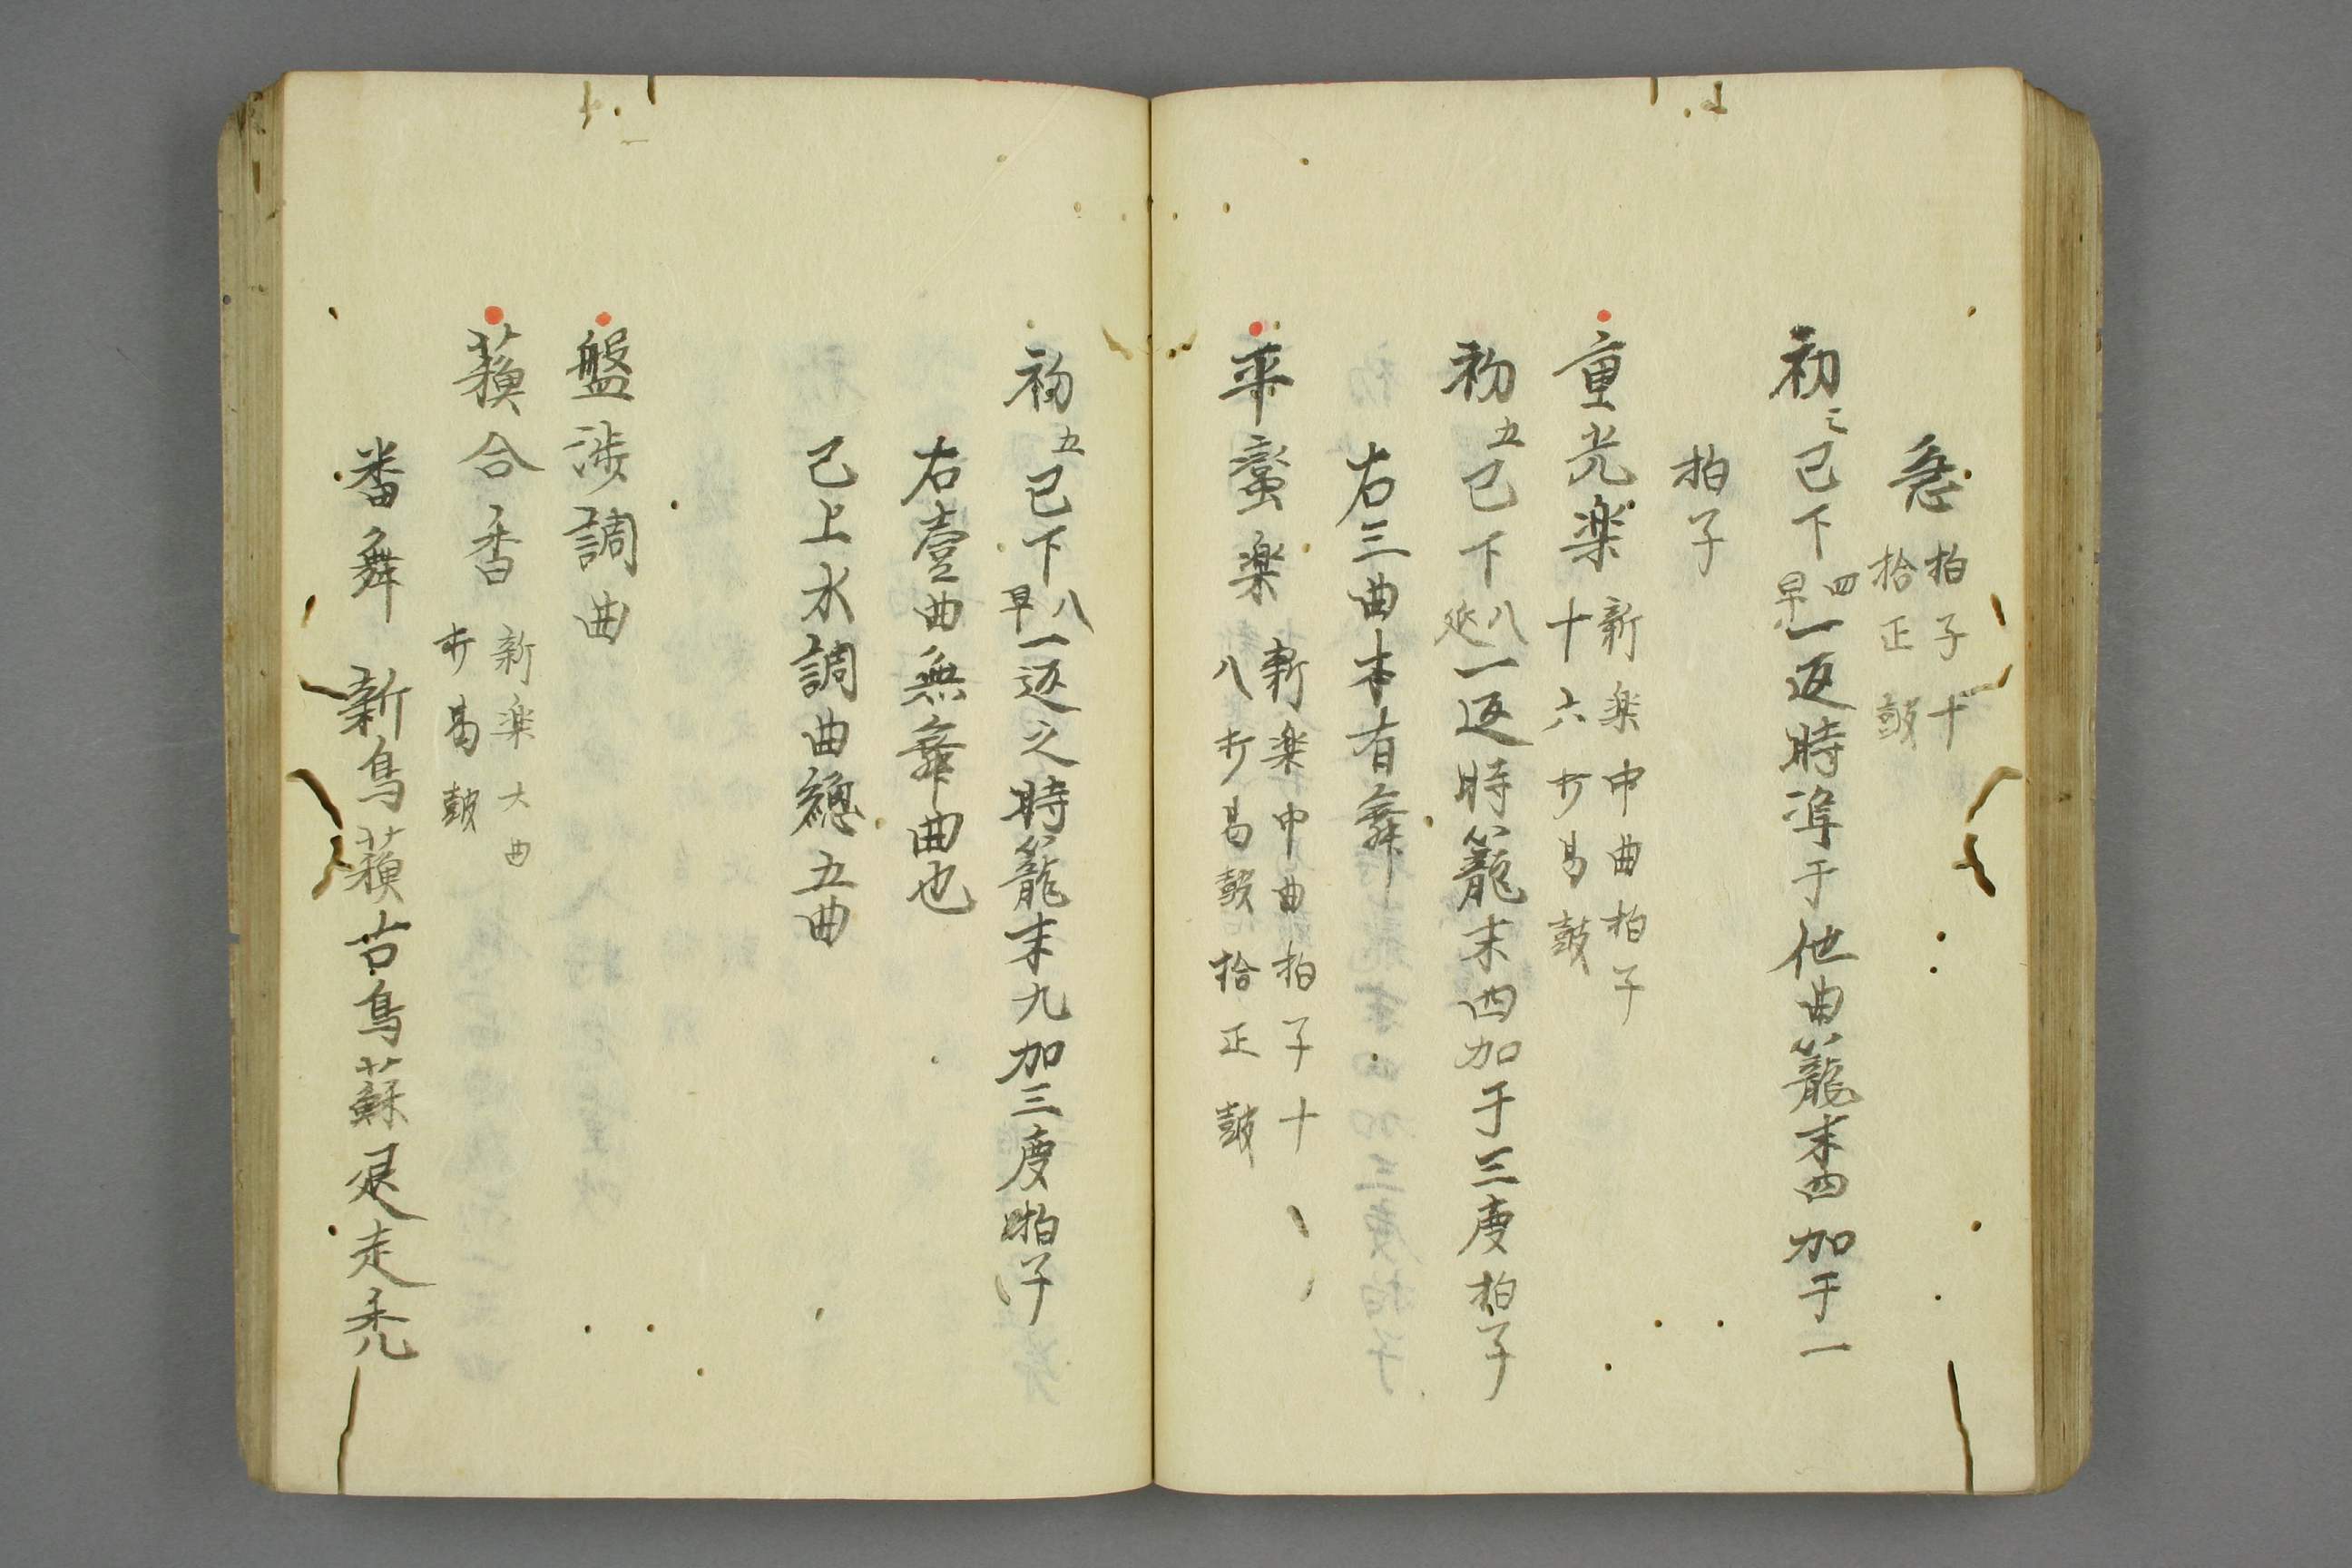 急 拍子十
拾正鼓
初三已下四早一返時準于他曲籠末四加于一
拍子
重光楽 新楽中曲拍子
十六打曷鼓
初五已下八延一返時籠末四加于三度拍子
右三曲本有舞
平蛮楽 新楽中曲拍子十
八打曷鼓拾正鼓
初五已下八早一返之時籠末九加三度拍子
右壹曲無舞曲也
已上水調曲總五曲
盤渉調曲
蘓合香 新楽大曲
打曷鼓
番舞 新鳥蘓古鳥蘇退走禿